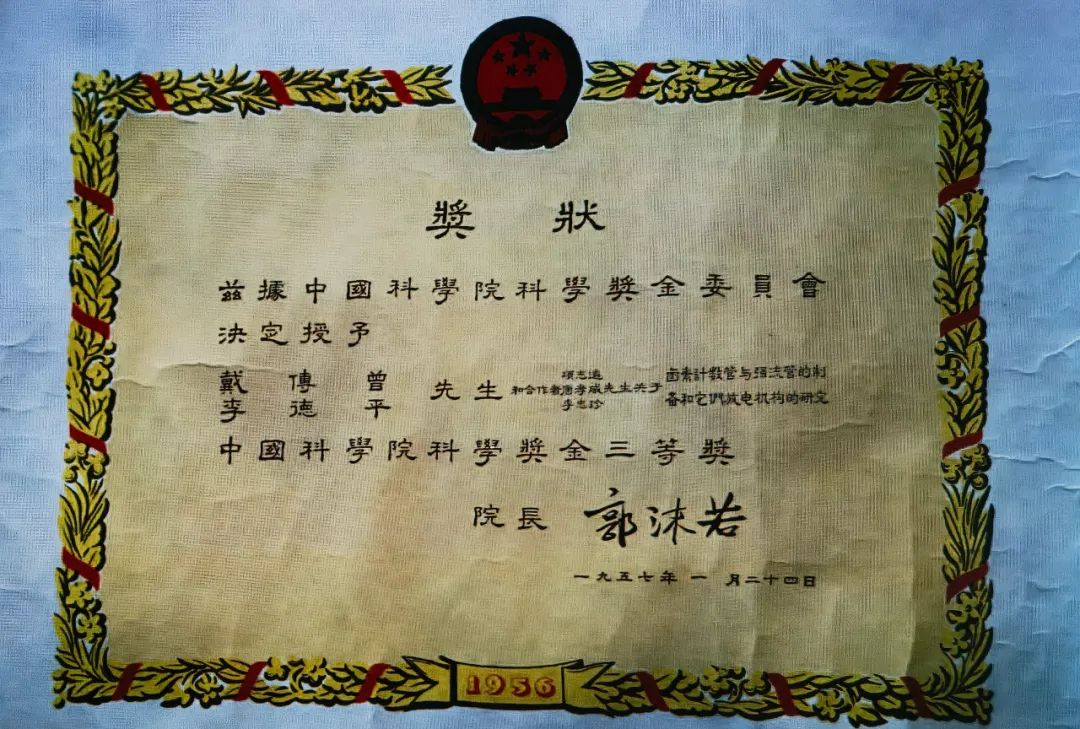 獎狀
兹據中國科學院科學獎金委員會
決定授予
戴傳曾
李德平
先生
項志遴
和合作者唐孝威先生关于
李忠珍
卤素計數管与强流管的制
备和它們放电机构的研究
中國科學院科學獎金三等獎
院長 郭沫若
一九五七年一月二十四日
1956